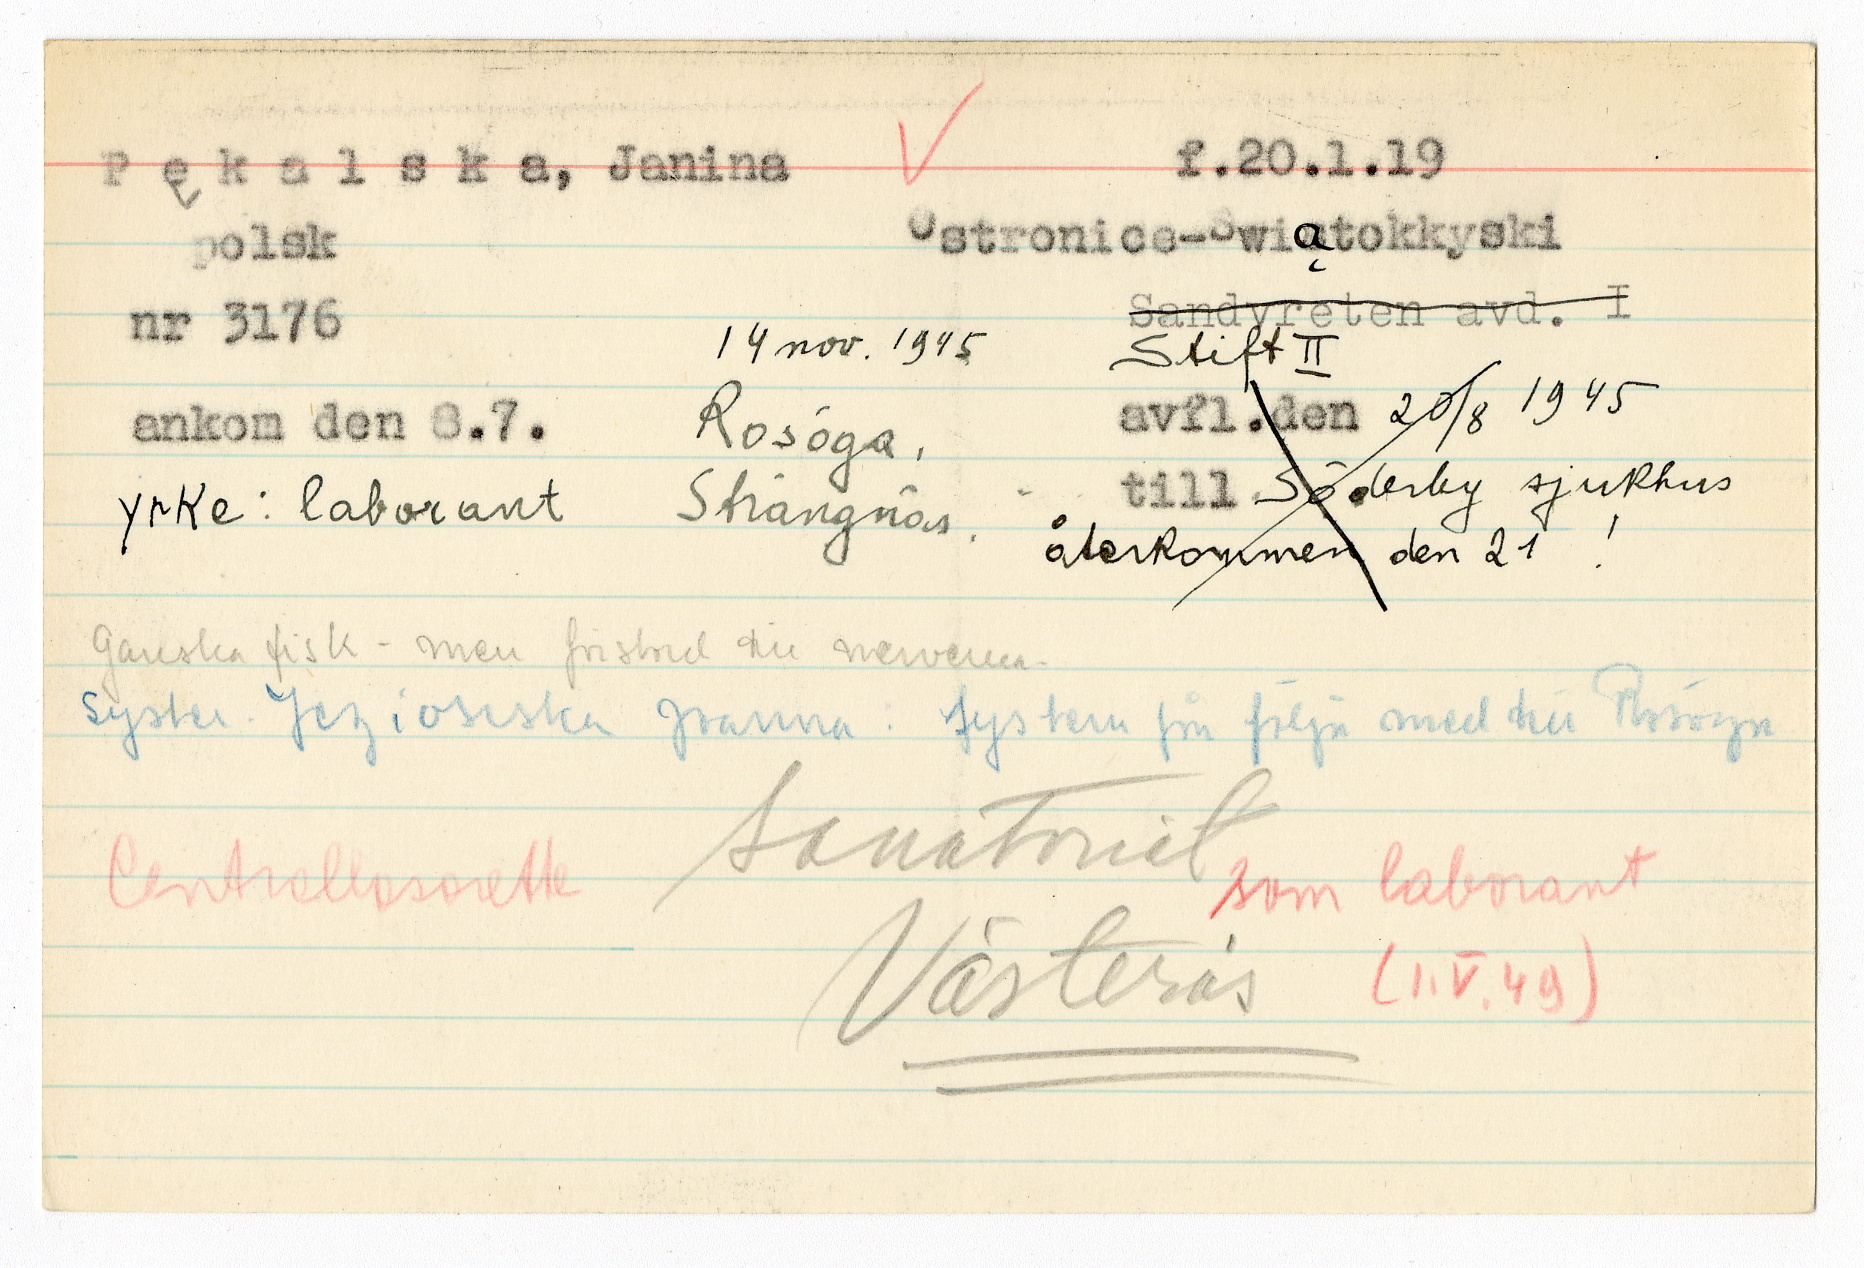 Pękalska, Janina f.20.1.19
polsk Ostronice-Swiątokkyski
nr 3176 Sandvreten avd. I
14 nov. 1945 Stift II
ankom den 8.7. Rosöga, avfl.den 20/8 1945
yrke: laborant Strängnäs. till Söderby sjukhus
återkommen den 21 !
Ganska frisk - men förstörd till nerverna.
Syster Joanna: Systern får följa med till Rosöga
Sanatoriet
Centrallasarett som laborant
Västerås (1.V.49)